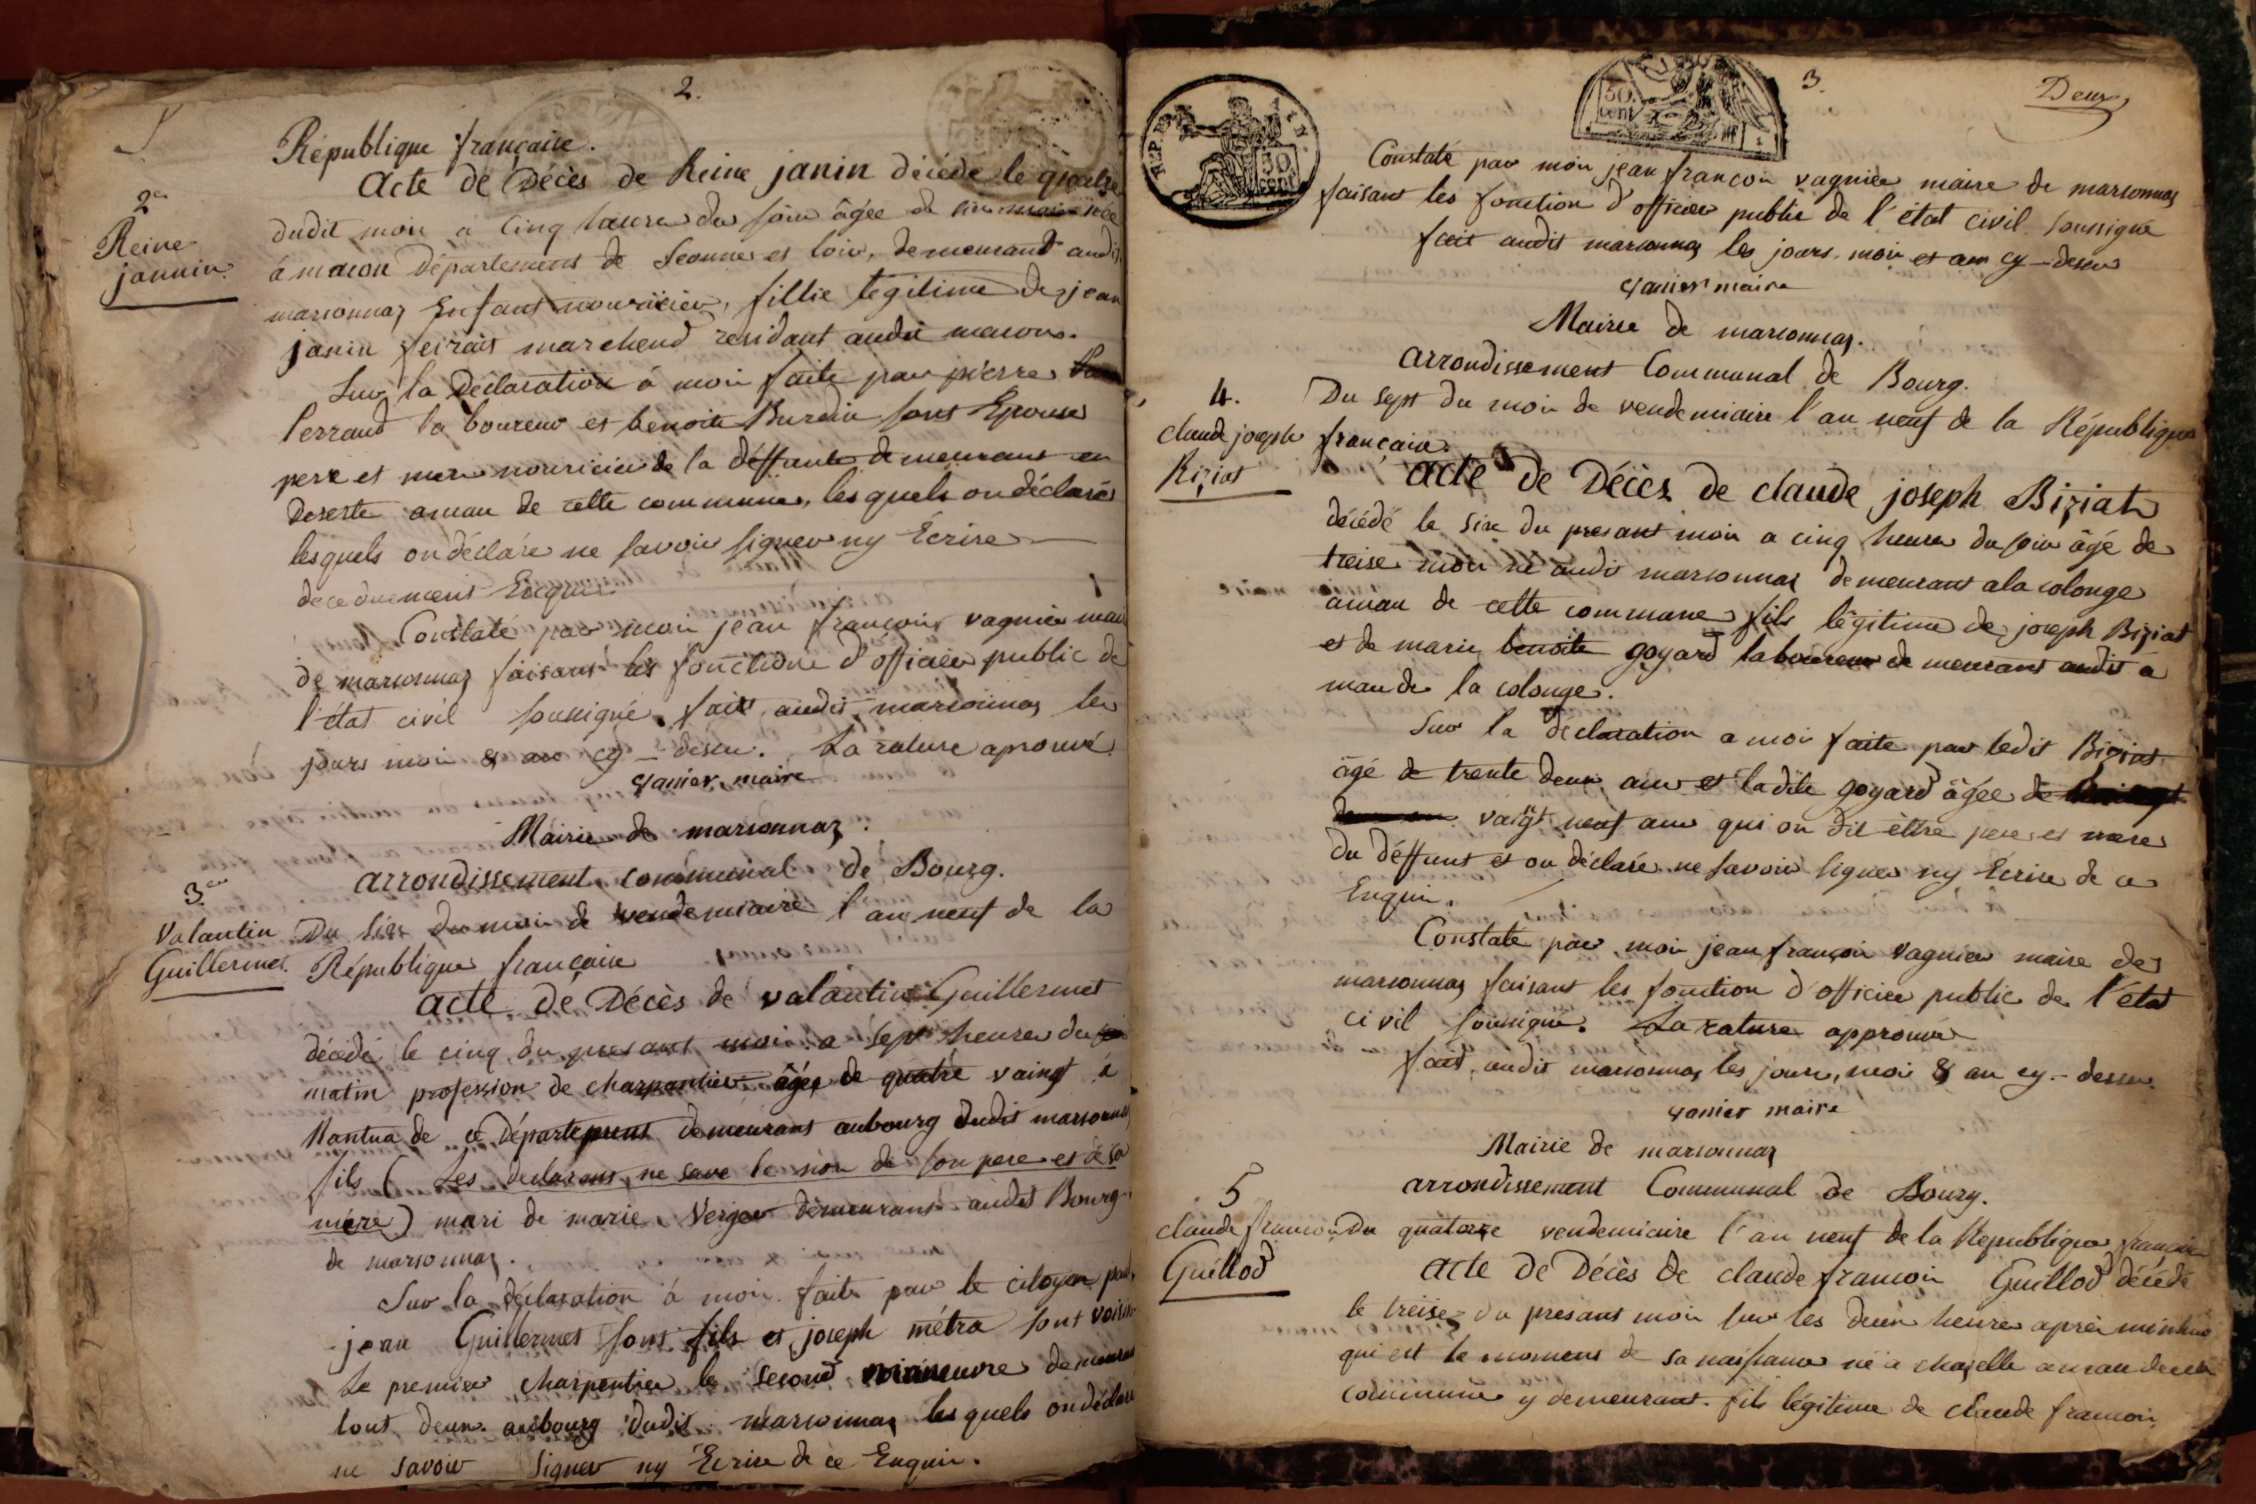 2.
République française.
Acte de Décès de Reine janin décédé le quatre
2e
Reine
jannin
dudit moi a cinq heure du soir âgée de
à macon Département de Seaune et loire, demeurant audit
marsonnaz Enfant nouricier, fillie legitime de jean
janin feirait marchend residant audit macon.
Sur la Déclaration à moi faite par pierre
Perraud laboureur et benoite Burdin sont Epouse
pere et mere nouricier de la déffunte demeurant en
Deserte amau de cette commune, lesquels on déclaré
lesquels on déclare ne savoir signer ny Ecrire
de ce duement Enquis
Constaté par moi jean françois vagnier maire
de marsonnaz faisant les fonctions d'officier public de
l'état civil soussigné. fait audit marsonnaz les
jours moi & an cy-dessu. La rature aprouvé
vanier maire
Mairie de marsonnaz.
arrondissement communal de Bourg.
3em
Valantin
Guillermet
Du six du moi de vendemiaire l'an neuf de la
République française
acte de Décès de valantin Guillermet
décédé le cinq du presant moi a sept heure du
matin profession de charpantier âgé de quatre vaingt à
Nantua de ce Département demeurant aubourg dudit marsonnaz
fils ( Les declarant ne save le non de son pere et de sa
mére ) mari de marie Verger demeurant audit Bourg
de marsonnaz.
Sur la déclaration à moi faite par le citoyen
jean Guillermet sont fils et joseph métra sont voisin
Le premier charpentier le second maneuvre demeurant
tout deux aubourg dudit marsonnaz lesquels on déclaré
ne savoir signer ny Ecrire de ce Enquis.
REP. FRA.
50
cent
50
cent
3.
Deux
Constaté par moi jean françoi vagnier maire de marsonnaz
faisant les fonction d'officier public de l'état civil soussigné
fait audit marsonnaz les jours moi et an cy-dessu
vanier maire
Mairie de marsonnaz.
arrondissement Communal de Bourg.
4.
claude joseph
Biziat
Du sept du moi de vendemiaire l'an neuf de la République
française.
acte de Décès de claude joseph Biziat
décédé le six du presant moi a cinq heure du soir âgé de
treise moi né audit marsonnaz demeurant a la colonge
amau de cette commune fils légitime de joseph Biziat
et de marie benoite goyard laboureur demeurant audit a
mau de la colonge.
Sur la déclaration a moi faite par ledit Biziat
âgé de trente deux ans et ladite goyard âgée de
vaigt neuf ans qui on dit être pere et mere
du déffunt et on déclaré ne savoir signer ny Ecrire de ce
Enquis.
Constaté par moi jean françoi vagnier maire de
marsonnaz faisant les fonction d'officier public de l'état
civil soussigné. La rature approuvé
fait audit marsonnaz les jours, moi & an cy-dessu.
vanier maire
Mairie de marsonnaz
arrondissement Communal de Bourg.
5
claude francoi
Guillod
Du quatorze vendemiaire l'an neuf de la République française
acte de Décès de claude francoi Guillod décédé
le treise du presant moi sur les deux heures aprés minhuit
qui est le moment de sa naissance né a chazelle amau de cette
commune y demeurant fils légitime de claude francoi